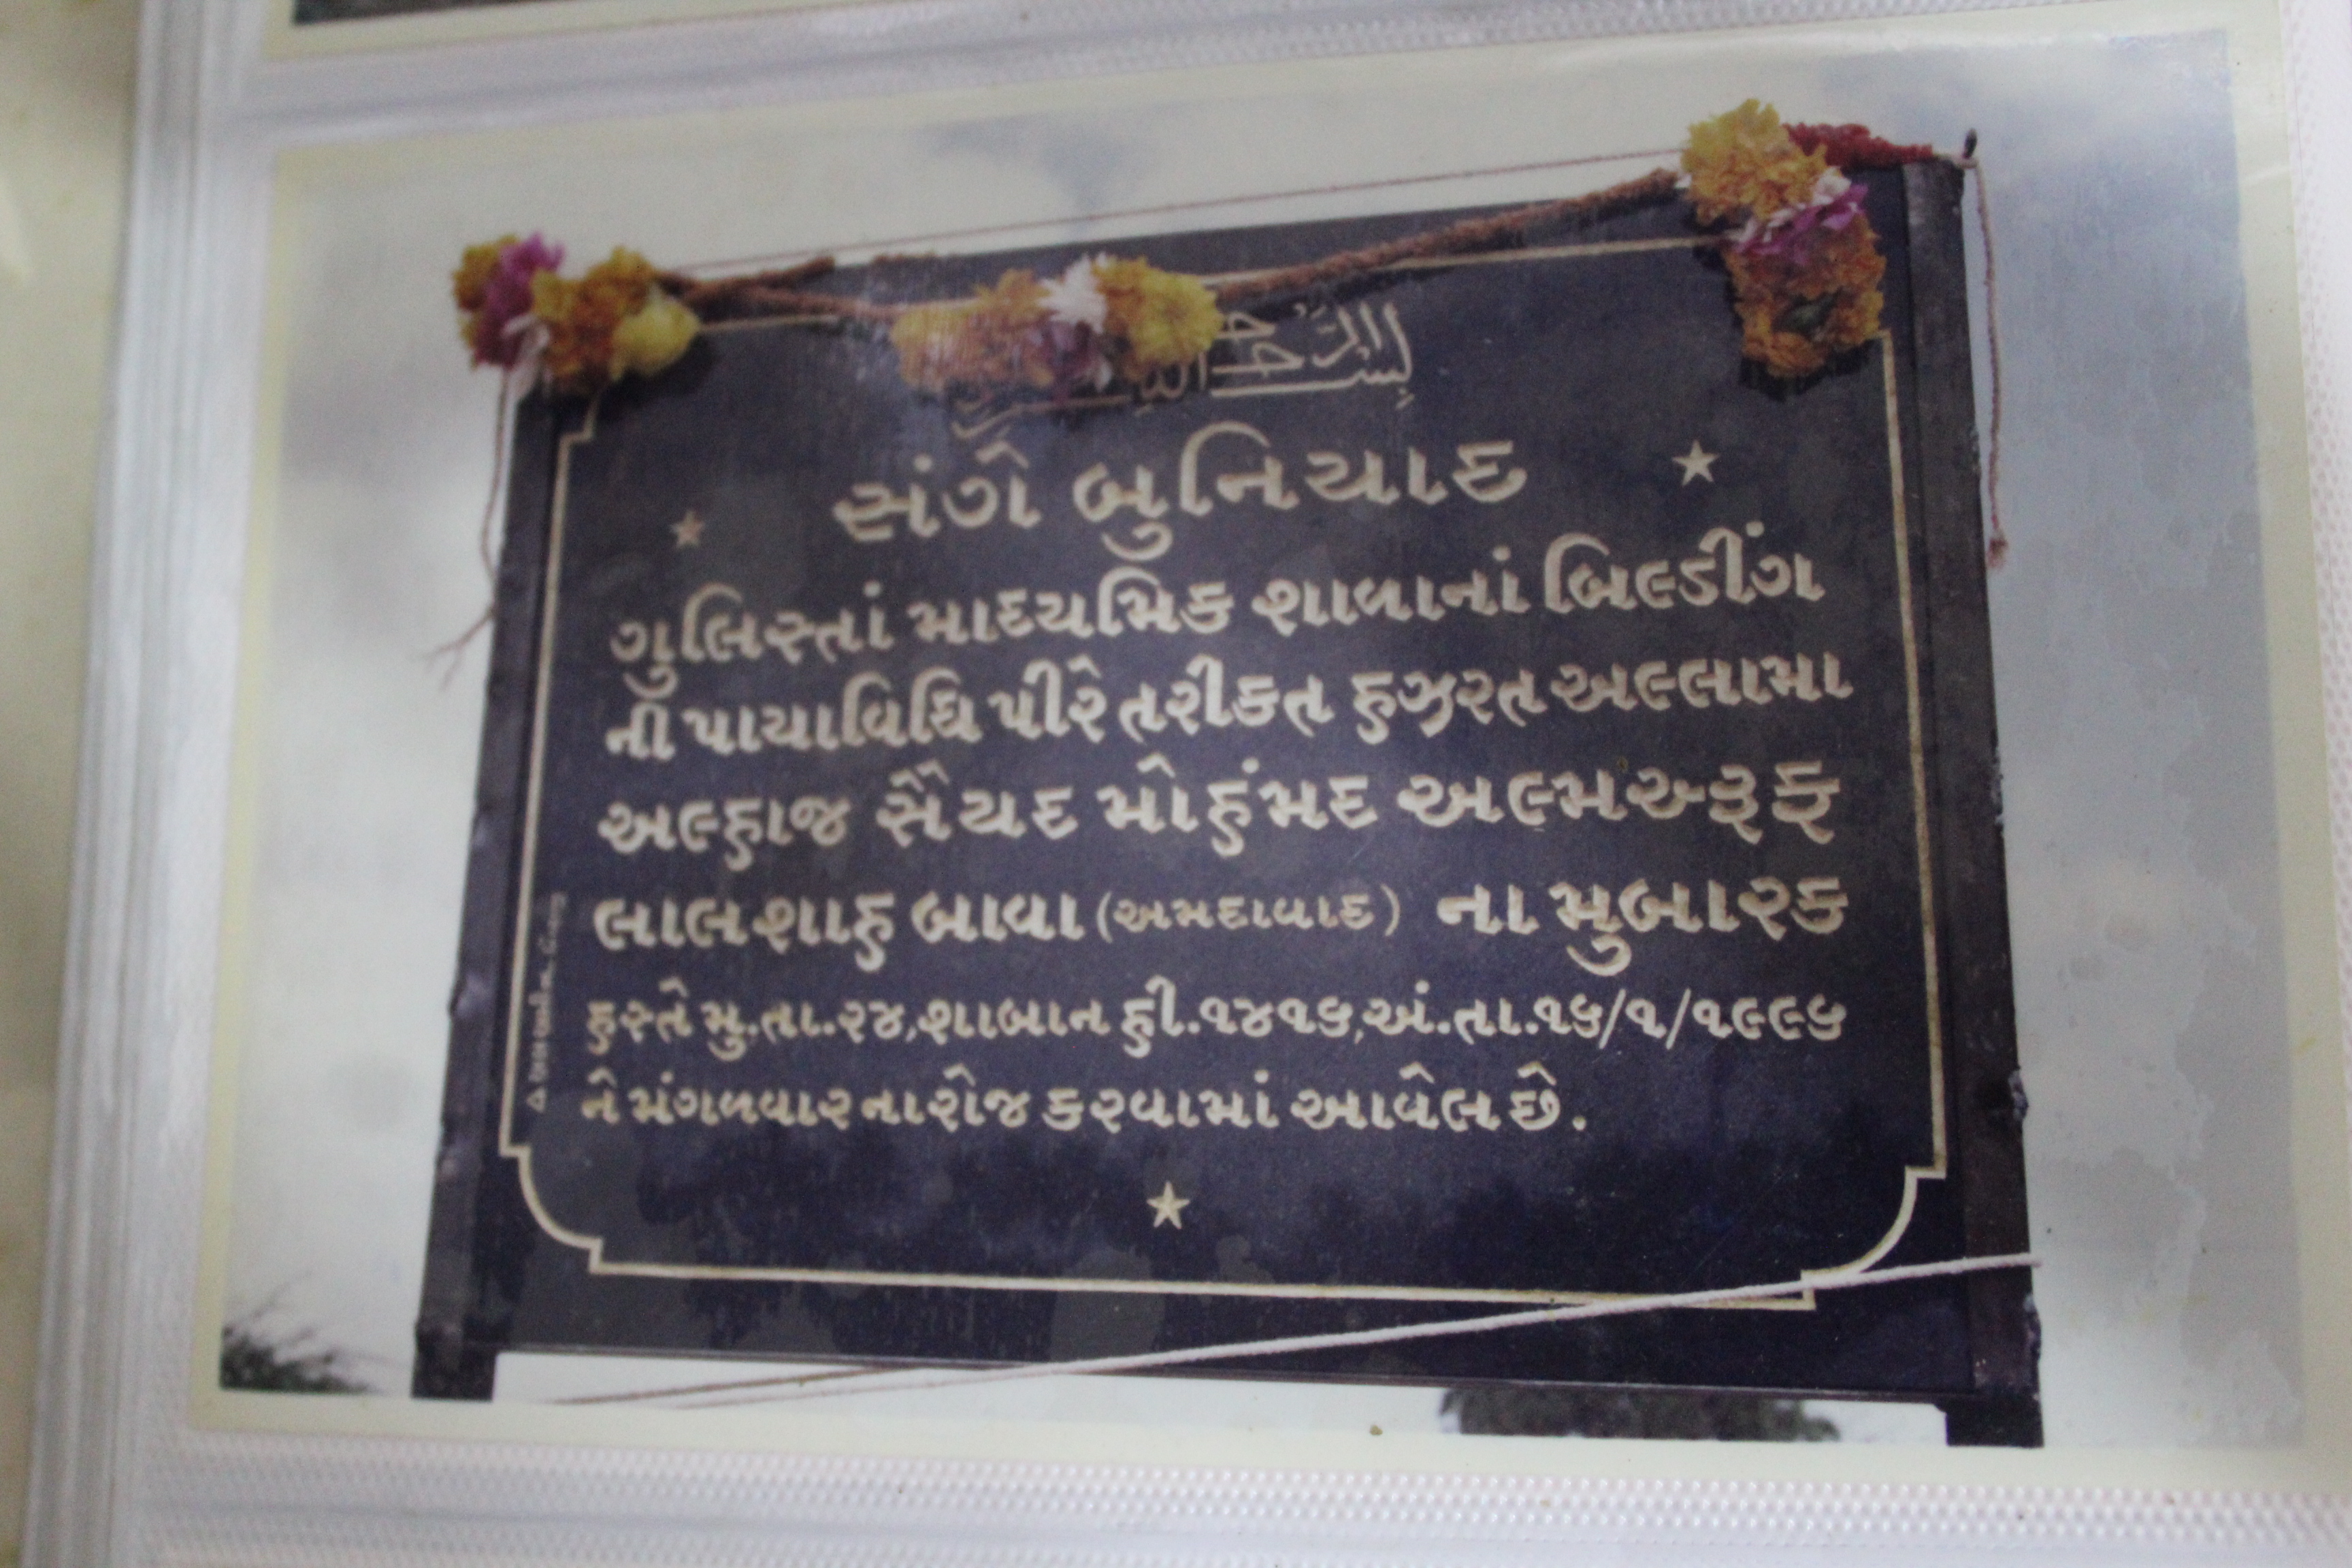 સંગે બુનિયાદ
ગુલિસ્તાં માધ્યમિક શાળાનાં બિલ્ડીંગ
ની પાયાવિધિ પીરે તરીકત હઝરત અલ્લામા
અલ્હાજ સૈયદ મોહંમદ અલ્મઅ્રૂફ
લાલશાહ બાવા (અમદાવાદ) ના મુબારક
હસ્તે મુ.તા.૨૪,શાબાન હી.૧૪૧૬,અં.તા.૧૬/૧/૧૯૯૬
ને મંગળવાર ના રોજ કરવામાં આવેલ છે.